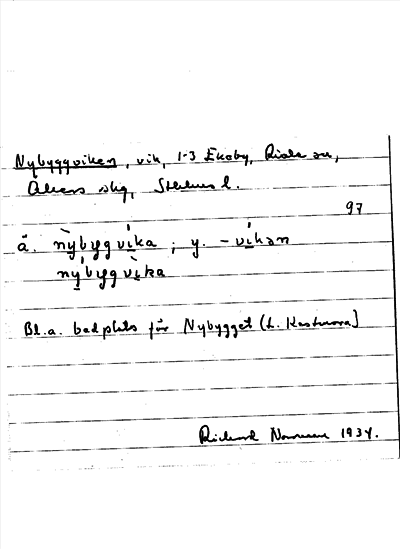 Nybyggviken, vik, 1-3 Ekeby, Riala sn,
Åkers skg, Sthlms l.
97
ä. nỳbyggví̱ka; y. -ví̱kən
ný̱byggvì̱ka
Bl.a. badplats för Nybygget (L. Kasberga)
Richard 1934.